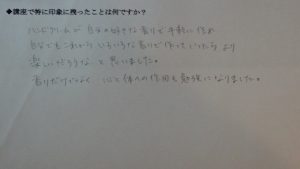 ◆講座で特に印象に残ったことは何ですか？
ハンドクリームが自分の好きな香りで手軽に作れ
自宅でもこれからいろいろな香りで作っていったらより
楽しいだろうな と思いました。
香りだけでなく、心と体への作用も勉強になりました。